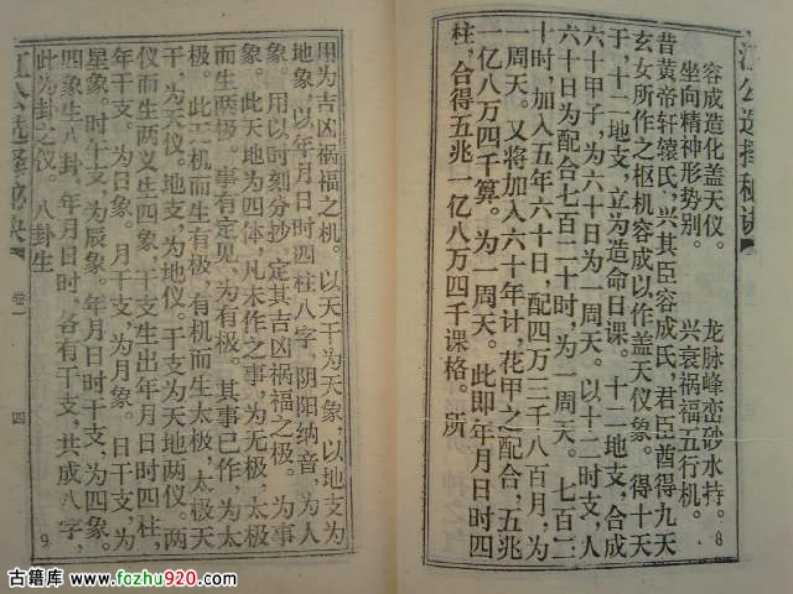 江公选择秘诀
容成造化盖天仪。 龙脉峰峦砂水持。
坐向精神形势别。 兴衰祸福五行机。
昔黄帝轩辕氏，兴其臣容成氏，君臣酋得九天
玄女所作之枢机容成以作盖天仪象。得十天
于，十二地支，立为造命日课。十二地支，合成
六十甲子，为六十日为一周天。以十二时支，人
六十日为配合七百二十时，为一周天。七百二
十时，加入五年六十日，配四万三千八百月，为
一周天。又将加入六十年计，花甲之配合，五兆
一亿八万四千算。为一周天。此即年月日时四
柱，合得五兆一亿八万四千课格。所
8
用为吉凶祸福之机。以天干为天象，以地支为
地象，以年月日时四柱八字，阴阳纳音，为人
象。用以时刻分抄，定其吉凶祸福之极。为事
象。此天地为四体，凡未作之事，为无极，太极
而生两极。事有定见，为有极。其事已作，为太
极。此天机而生有极，有机而生太极，太极天
干，为天仪。地支，为地仪。干支为天地两仪。两
仪而生两义生四象，干支生出年月日时四柱，
年干支。为日象。月干支，为月象。日干支，为
星象。时午支，为辰象。年月日时干支，为四象。
四象生八卦，年月日时，各有干支，共成八字，
此为卦之仪。八卦生
江公选择秘诀 卷一 四
9
古籍库 www.fozhu920.com